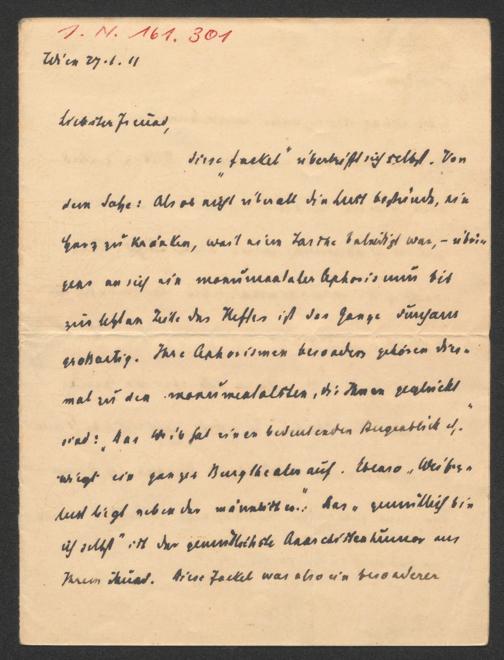 I. N. 161.301
Wien 27.1.11
Liebster Freund,
diese „Fackel" übertrifft sich selbst. Von
dem Satze: Als ob nicht überall die Lust bestünde, ein
Herz zu kränken, weil eine Tasche beleidigt war, – übri-
gens an sich ein monumentaler Aphorismus bis
zur letzten Zeile des Heftes ist das Ganze durchaus
großartig. Ihre Aphorismen besonders gehören dies-
mal zu den monumentalsten, die Ihnen geglückt
sind: „Das Weib hat einen bedeutenden Augenblick etc."
wiegt ein ganzes Burgtheater auf. Ebenso „Weibes-
lust liegt neben der männlichen". Das „gemütlich bin
ich selbst" ist der gemütlichste Anarchistenhumor aus
Ihrem Mund. Diese Fackel war also ein besonderer